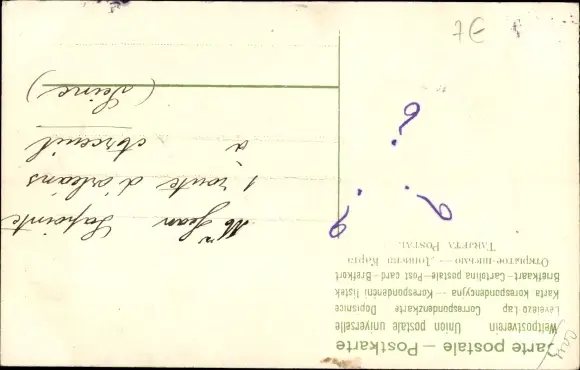 Carte postale — Postkarte
Weltpostverein Union postale universelle
Levelező-Lap — Correspondenzkarte — Dopisnice
Karta korespondencyjna — Korespondenční lístek
Briefkaart - Cartolina postale - Post card - Brefkort
Открытое письмо
TARJETA POSTAL
? ? ?
Mr Jean Lapointe
1 route d'orléans
à Arceuil
(Seine)
7€